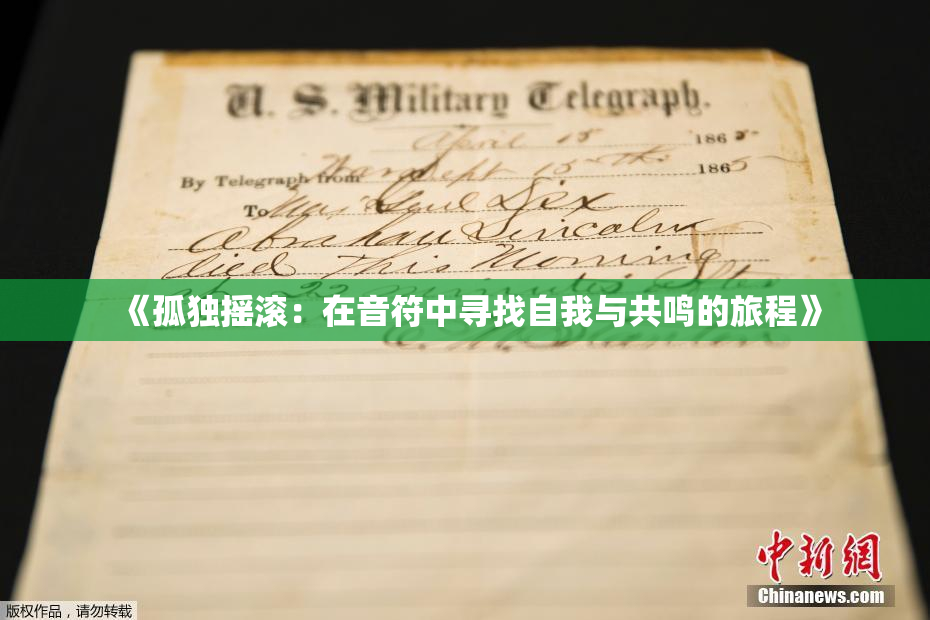 U. S. Military Telegraph.
April 15 1865
By Telegraph from War Dept 15th 1865
To Maj Genl Dix
Abraham Lincoln
died This Morning
at 22 minutes after
《孤独摇滚：在音符中寻找自我与共鸣的旅程》
E. M. Stanton
中新网
Chinanews.com
版权作品，请勿转载